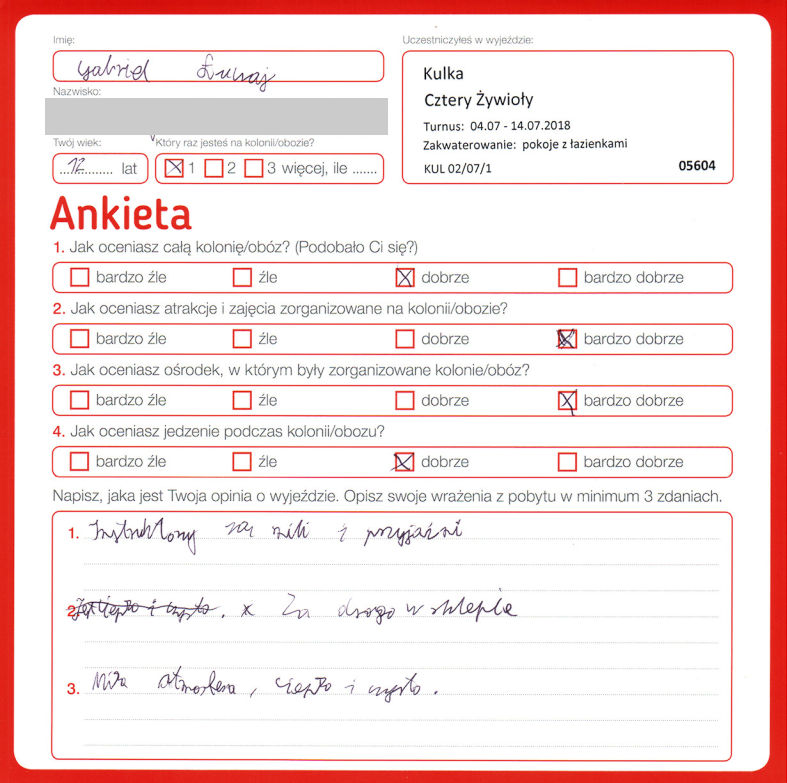 Imię:
Gabriel
Nazwisko:
Twój wiek:
Który raz jesteś na kolonii/obozie?
12 lat
1 2 3 więcej, ile .......
Uczestniczyłeś w wyjeździe:
Kulka
Cztery Żywioły
Turnus: 04.07 - 14.07.2018
Zakwaterowanie: pokoje z łazienkami
KUL 02/07/1 05604
Ankieta
1. Jak oceniasz całą kolonię/obóz? (Podobało Ci się?)
bardzo źle źle dobrze bardzo dobrze
2. Jak oceniasz atrakcje i zajęcia zorganizowane na kolonii/obozie?
bardzo źle źle dobrze bardzo dobrze
3. Jak oceniasz ośrodek, w którym były zorganizowane kolonie/obóz?
bardzo źle źle dobrze bardzo dobrze
4. Jak oceniasz jedzenie podczas kolonii/obozu?
bardzo źle źle dobrze bardzo dobrze
Napisz, jaka jest Twoja opinia o wyjeździe. Opisz swoje wrażenia z pobytu w minimum 3 zdaniach.
1. Instruktorzy są mili i przyjaźni
2. Jest ciepło i czysto. x Za drogo w sklepie
3. Miła atmosfera, ciepło i czysto.